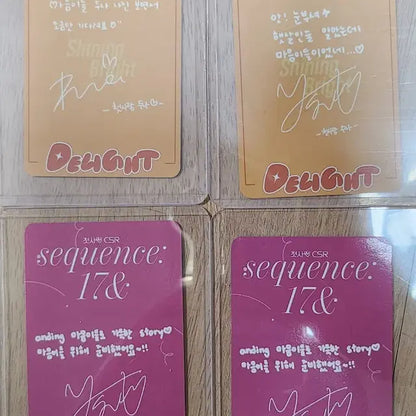 마음이들 두사 사진 보면서
조금만 기다려줘요
Shining
Bright
- 첫사랑 두나 -
DELIGHT
앗! 눈부셔
햇살인 줄 알았는데
마음이들이었네...♡
Shining
Bright
- 첫사랑 수아 -
DELIGHT
첫사랑 CSR
sequence:
17&
anding 마음이들로 가득한 story♡
마음이를 위해 준비했어요~!!
첫사랑 CSR
sequence:
17&
anding 마음이들로 가득한 story♡
마음이를 위해 준비했어요~!!